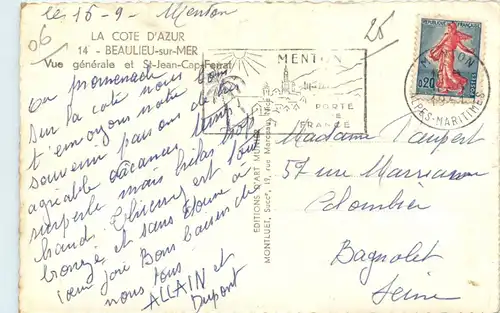 le 15-9- Menton
06
25
LA COTE D'AZUR
14 - BEAULIEU-sur-MER
Vue générale et St-Jean-Cap-Ferrat
En promenade
sur la côté nous
t'envoyons notre bon
souvenir passons de très
agréable vacances temps
superbe mais hélas trop
chaud. Thierry est tout
bronzé et sans donne à
coeur joie Bons baisers de
nous tous.
ALLAIN et
Dupont
EDITIONS D'ART MUNIER
MONTLUET, Succr, 19, rue Marceau, Nice
MENTON
PORTE
DE
FRANCE
REPUBLIQUE FRANÇAISE
0,20
MENTON
ALPES-MARITIMES
Madame Taupert
57 rue Marceau
Colombier
Bagnolet
Seine